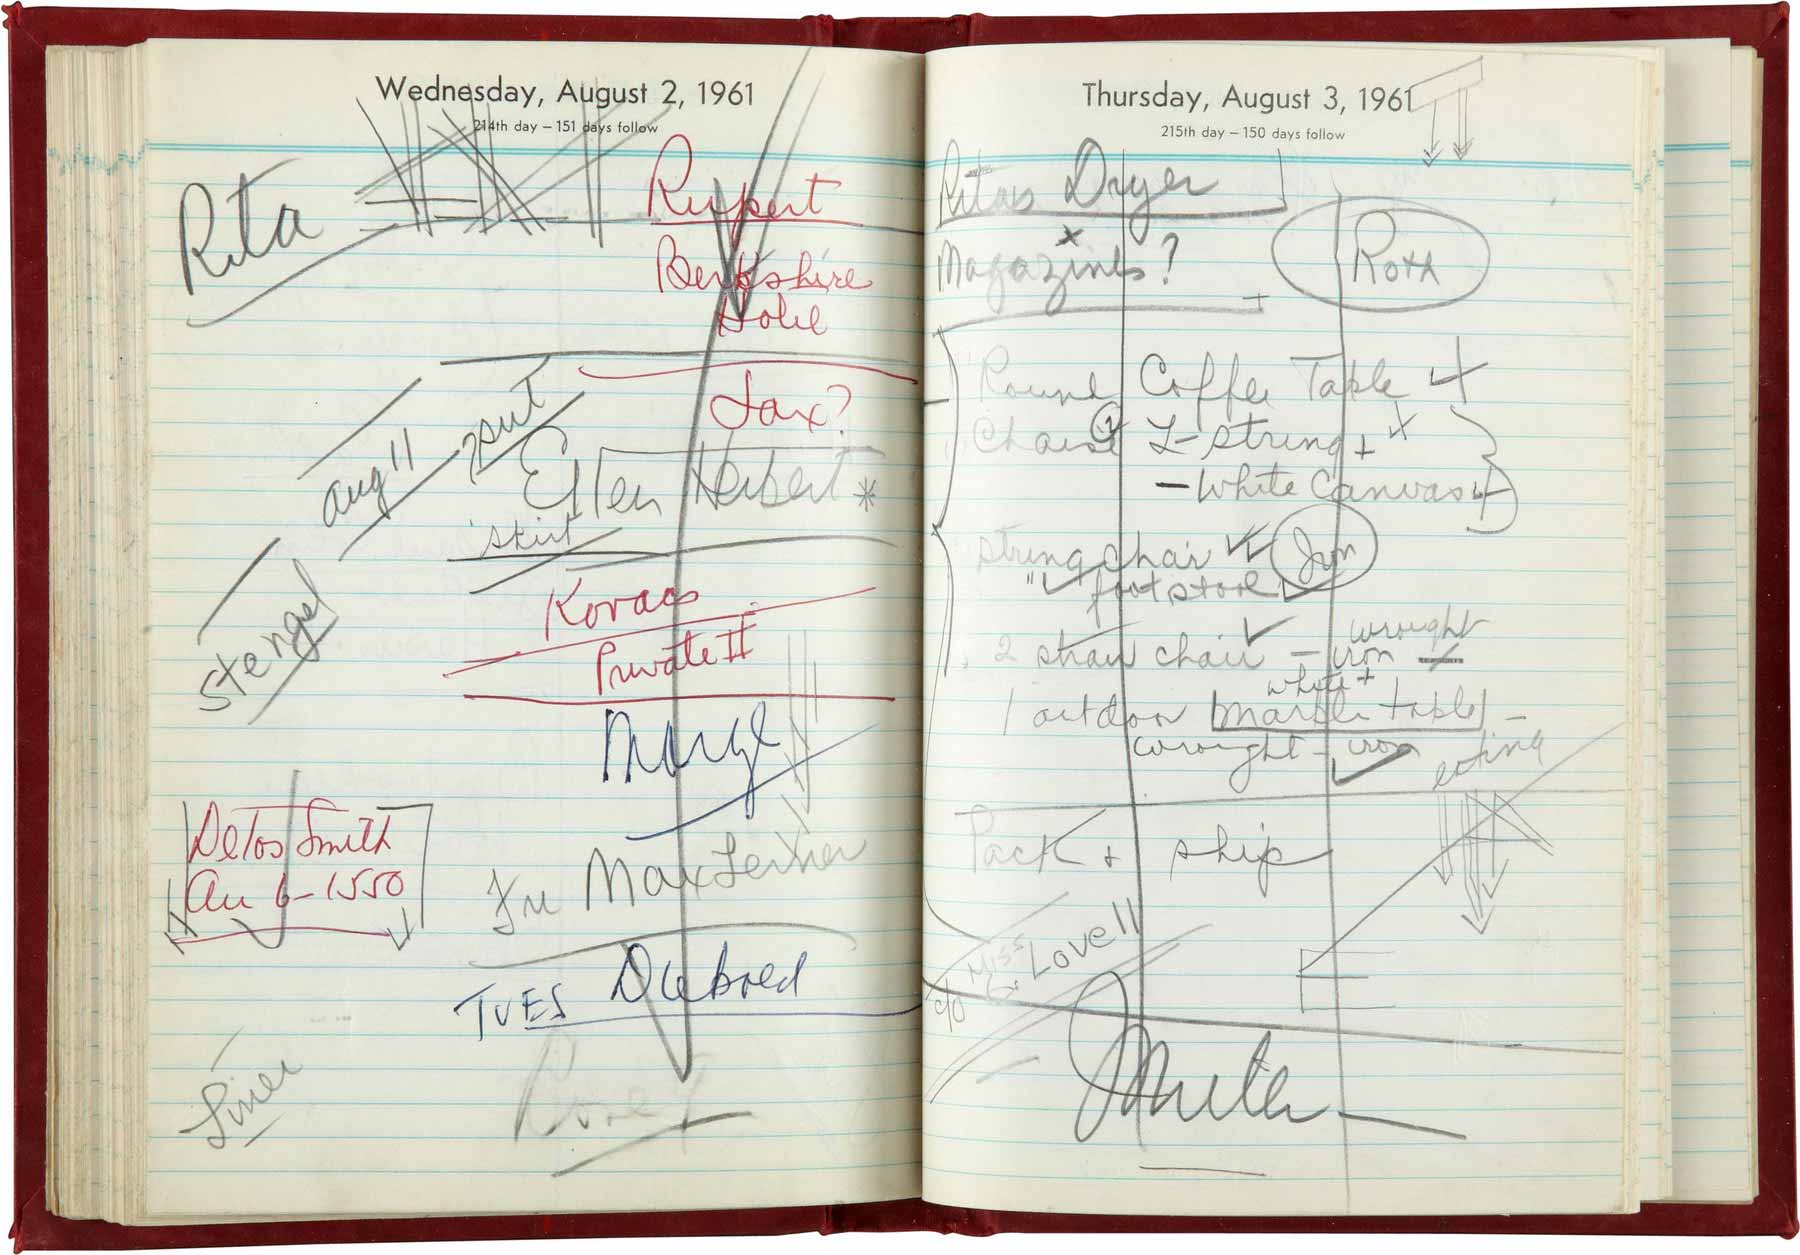 Wednesday, August 2, 1961
214th day – 151 days follow
Rita
Rupert
Berkshire
Hotel
Tax?
Aug 11
Ellen Herbert *
skirt
Kovacs
Private II
Stengel
Marge
Delos Smith
1550
Max Lerner
TUES Diebold
Liner
Thursday, August 3, 1961
215th day – 150 days follow
Ritas Dryer
Magazines?
Roth
Round Coffee Table
Chaise L-string +
- White Canvas
string chair
Jim
" footstool
2 straw chair – wrought
iron
white +
1 outdoor marble table –
wrought – iron
eating
Pack + ship
c/o Miss G. Lovell